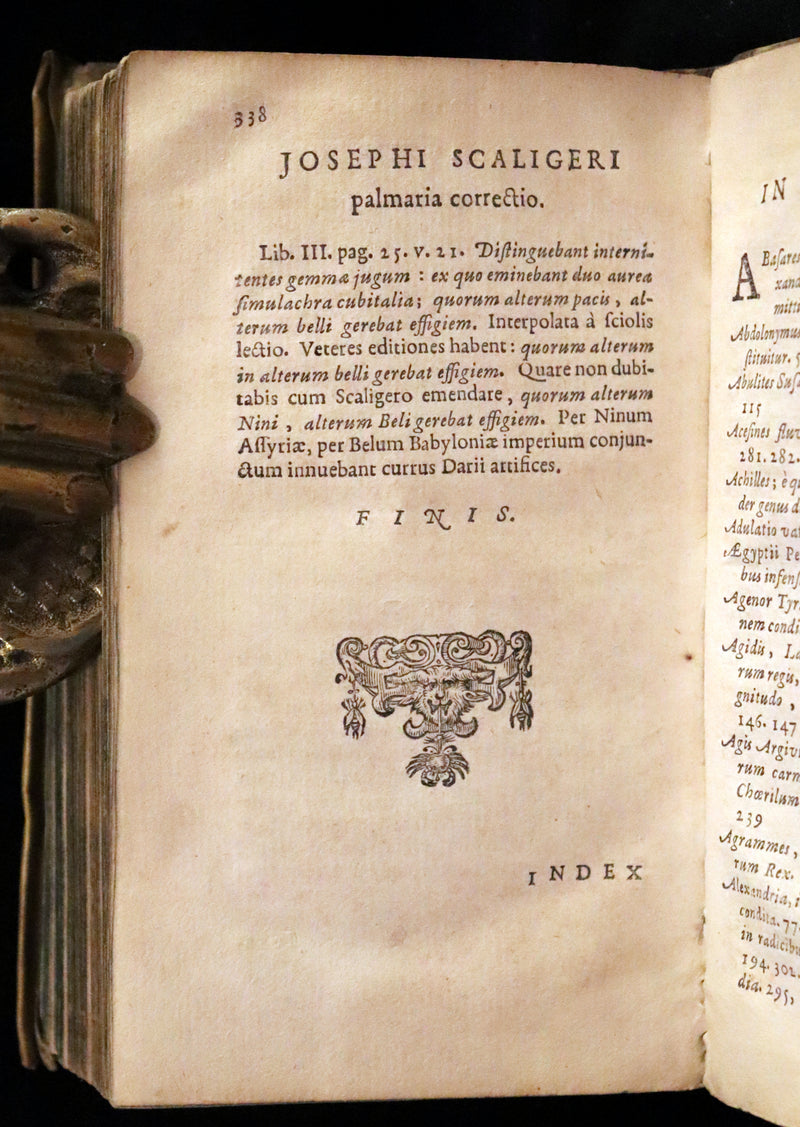 338
JOSEPHI SCALIGERI
palmaria correctio.
Lib. III. pag. 25. v. 21. Diſtinguebant interni-
tentes gemmæ jugum : ex quo eminebant duo aurea
ſimulachra cubitalia; quorum alterum pacis, al-
terum belli gerebat effigiem. Interpolata à ſciolis
lectio. Veteres editiones habent: quorum alterum
in alterum belli gerebat effigiem. Quare non dubi-
tabis cum Scaligero emendare, quorum alterum
Nini, alterum Beli gerebat effigiem. Per Ninum
Aſſyriæ, per Belum Babyloniæ imperium conjun-
ctum innuebant currus Darii artifices.
FINIS.
INDEX
IN
ABaſares
xand
mitti
Abdolonymus
ſtituitur.
Abulites Suſ
115
Aceſines fluv
281. 282.
Achilles; è qu
der genus d
Adulatio vat
Ægyptii Pe
bus infenſ
Agenor Tyr
nem condi
Agidis, La
rum regis,
gnitudo,
146. 147
Agis Argiv
rum carm
Chœrilum
239
Agrammes,
rum Rex.
Alexandria, i
condita. 77
in radicibu
194. 302.
dia. 295,